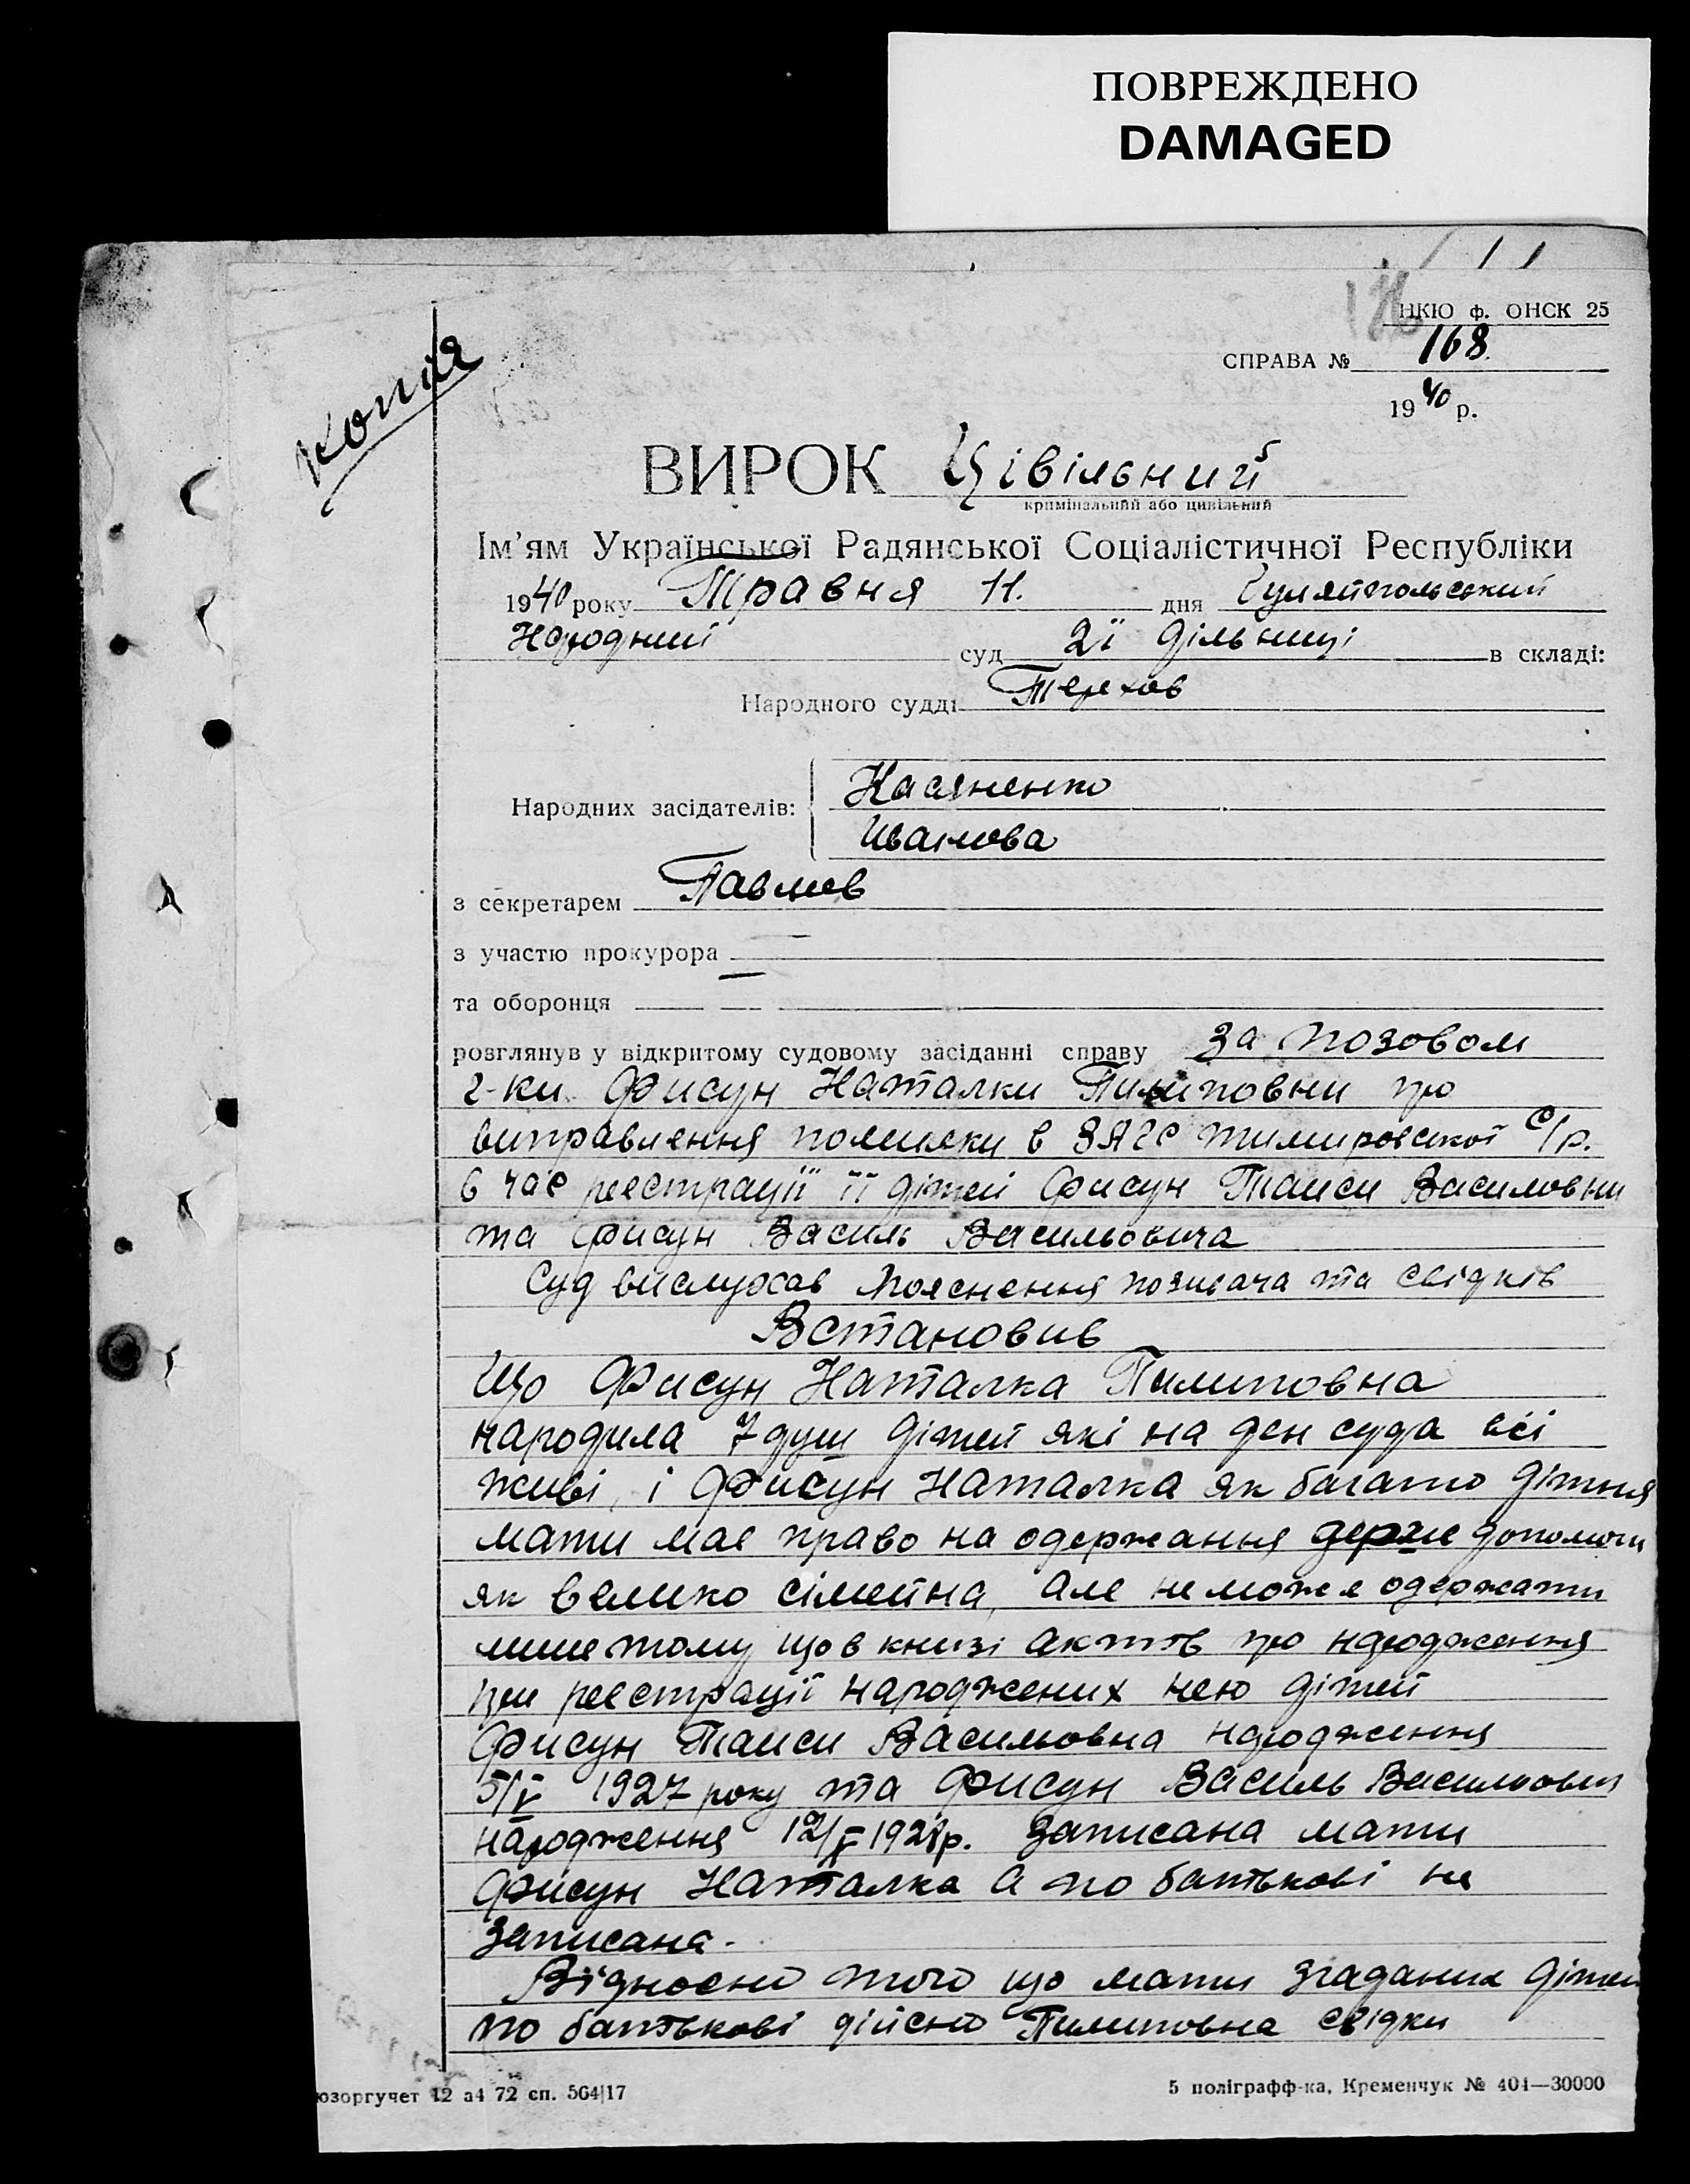 ПОВРЕЖДЕНО
DAMAGED
НКЮ ф. ОНСК 25
СПРАВА № 168
1940 р.
Копія
ВИРОК Цівільний
кримінальний або цивільний
Ім'ям Української Радянської Соціалістичної Республіки
1940 року Травня 11. дня Гуляйпольський
Народний суд 2ї дільниці в складі:
Народного судді Терехов
Народних засідателів: Касяненко
Иванова
з секретарем Павлов
з участю прокурора —
та оборонця — —
розглянув у відкритому судовому засіданні справу за позовом
г-ки Фисун Наталки Пилиповни про
виправлення помилки в ЗАГС тимировской с/р.
в час реєстрації її дітей Фисун Таиси Василовни
та Фисун Василь Васильовича
Суд вислухав пояснення позивача та свідків
Встановив
Що Фисун Наталка Пилиповна
народила 7 душ дітей які на ден суда всі
живі, і Фисун Наталка як багато дітня
мати має право на одержання допомоги
як велико сімейна, але не може одержати
лише тому що в книзі актов про народження
при реєстрації народжених нею дітей
Фисун Таиси Васильовна народження
5/V 1927 року та Фисун Василь Васильович
народження 1928р. записана мати
Фисун Наталка а по батькові не
записана.
Відносно того що мати згаданих дітей
по батькові дійсно Пилиповна свідки
юзоргучет 12 а4 72 сп. 564|17
5 поліграфф-ка, Кременчук № 401—30000